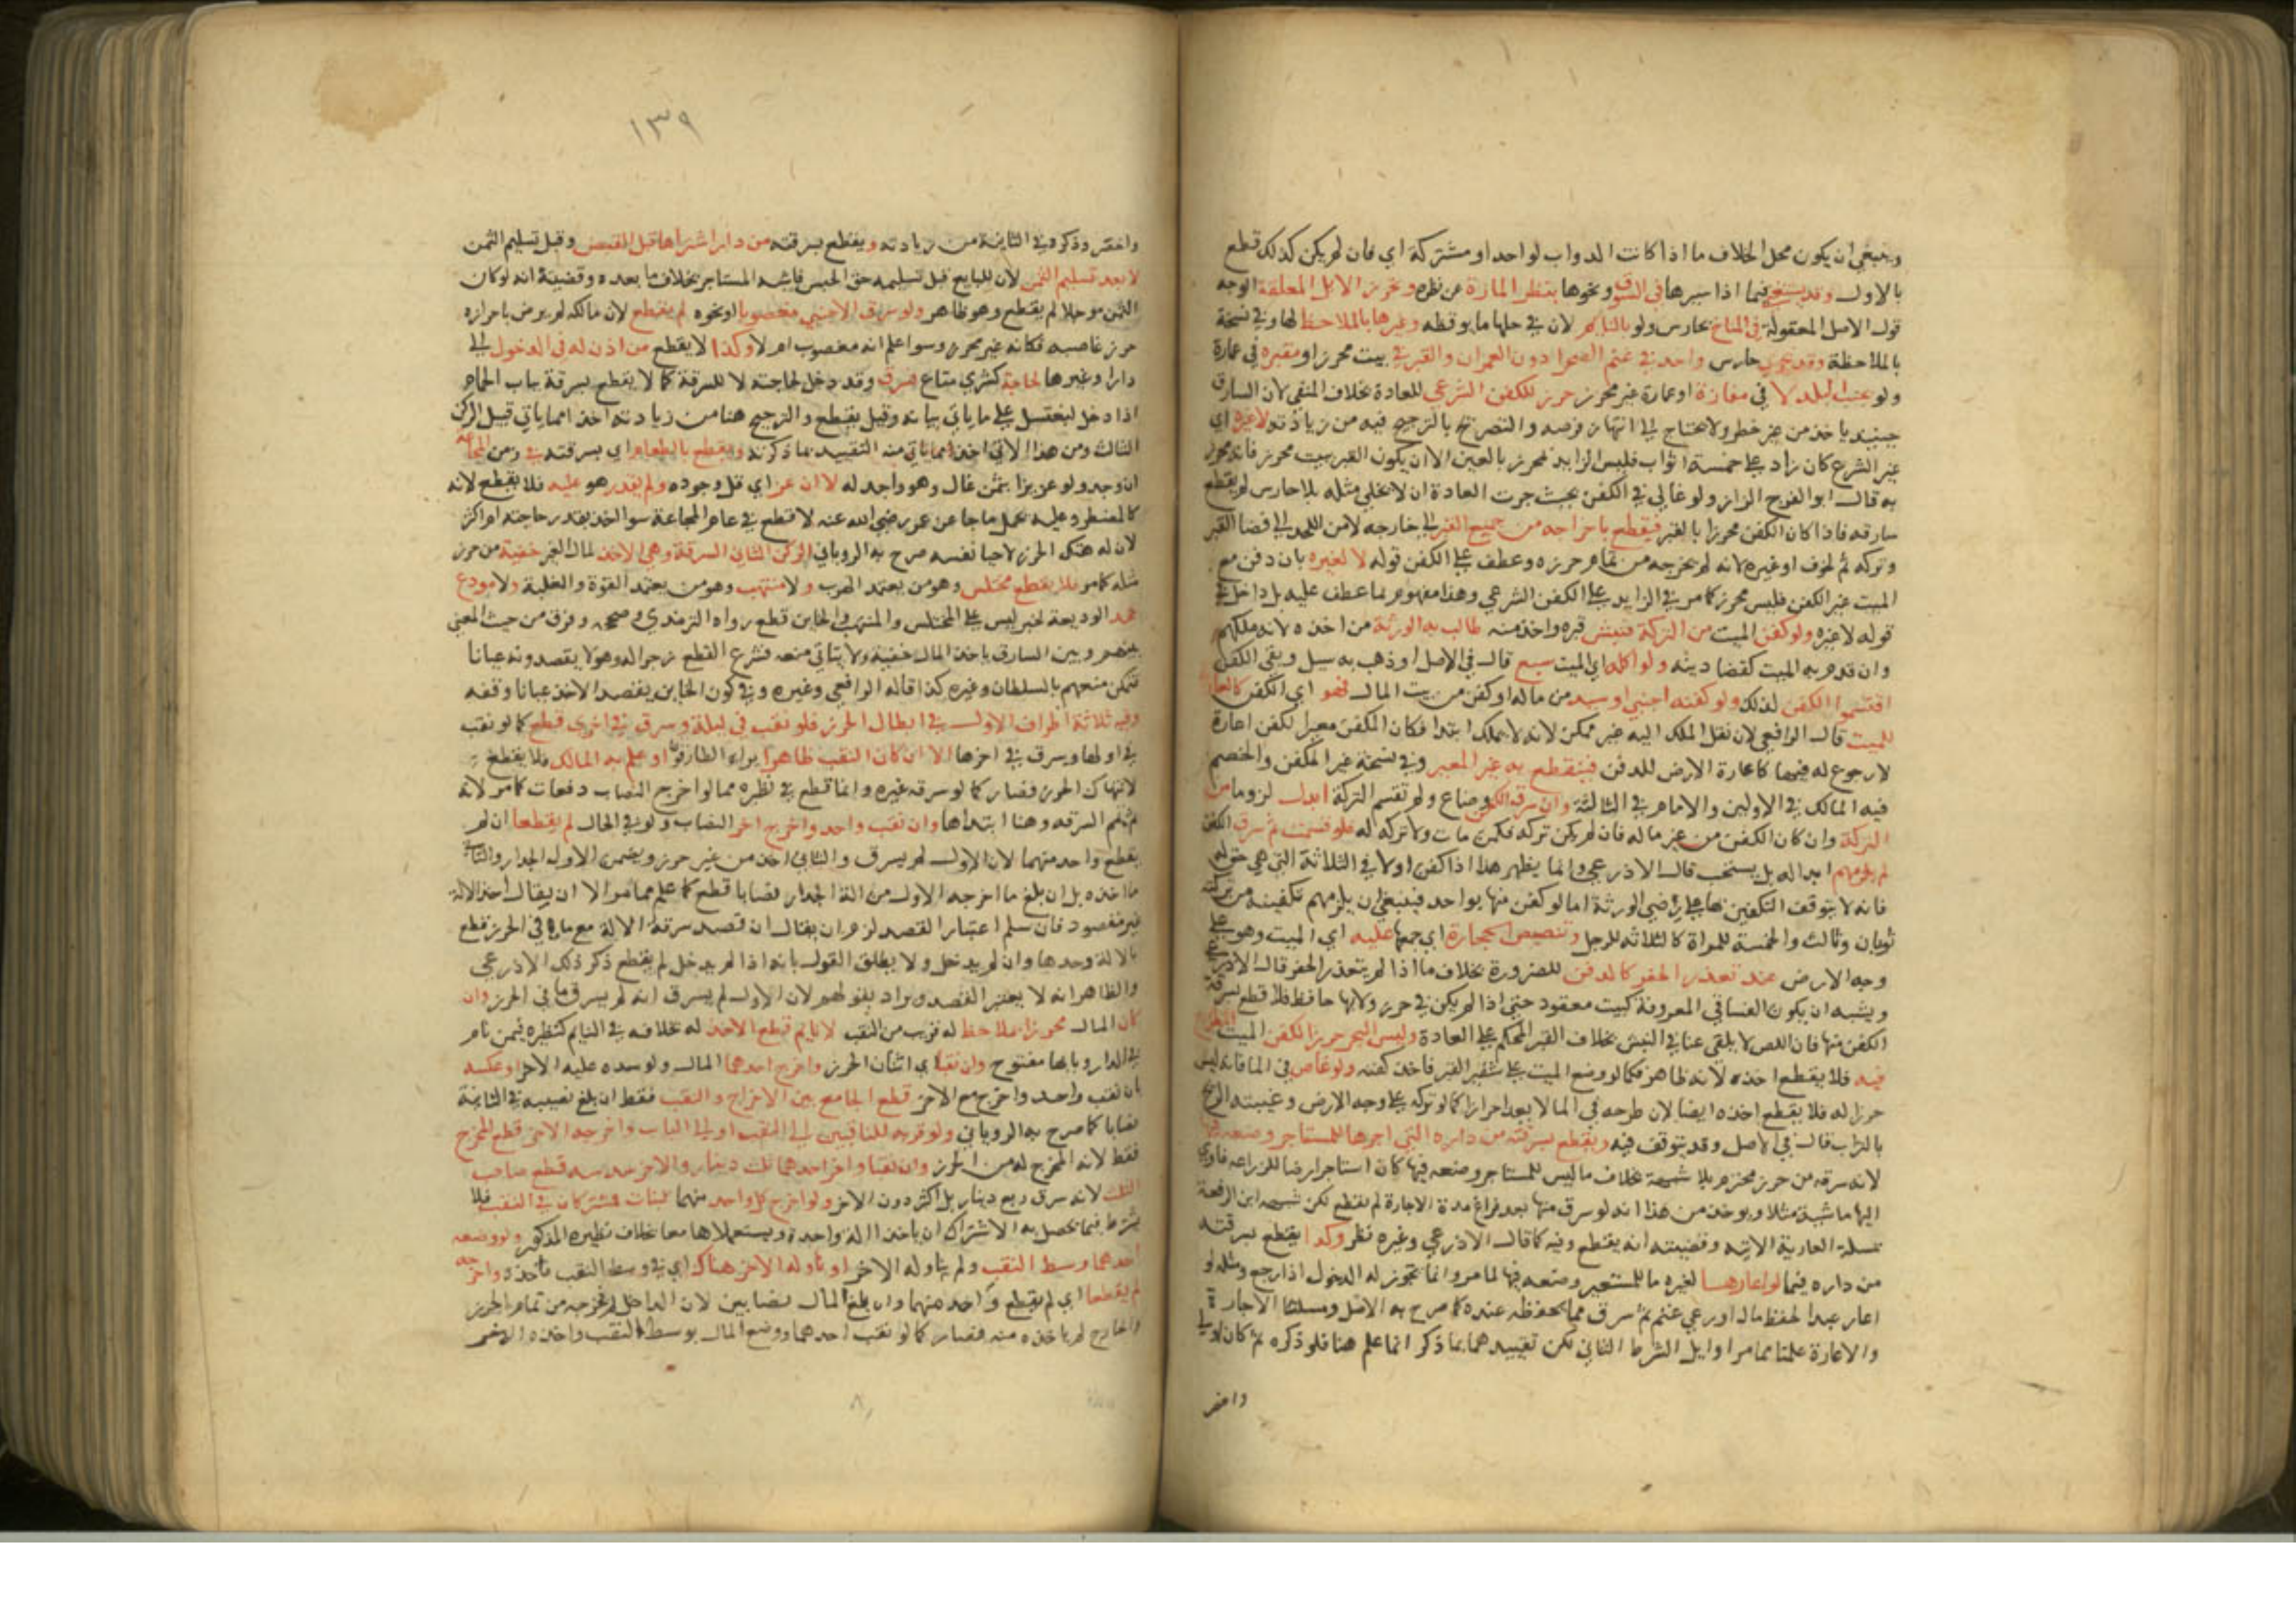 وينبغي ان يكون محل الخلاف ما اذا كانت الدواب لواحد او مشتركة اي فان لم يكن كذلك قطع
بالاول وقد يستغنى فيما اذا سيرها في السوق ونحوها بنظر المارة عن نظره وتحرز الابل المعلقة الوجه
قول الاصل المعقولة في المناخ بحارس ولو بالنائم لان في حلها ما يوقظه وغيرها بالملاحظ لها وفي نسخة
بالملاحظة وقد يحرس حارس واحد في غنم الصحرا دون العمران والقبر في بيت محرز او مقبرة في عمارة
ولو بجنب البلد لا في مفازة او عمارة غير محرز حرز للكفن الشرعي للعادة بخلاف المنفى لان السارق
حينيد ياخذ من غير خطر ولا يحتاج الى انتهاز فرصة والتصريح بالترجيح فيه من زيادته لا غيره اي
غير الشرع كان زاد على خمسة اثواب فليس الزايد بمحرز بالعين الا ان يكون القبر ببيت محرز فانه محرز
به قال ابو الفرج الزاز ولو غالى في الكفن بحيث جرت العادة ان لا يخلى مثله بلا حارس لم يقطع
سارقه فاذا كان الكفن محرزا بالقبر فيقطع باخراجه من جميع القبر الى خارجه لا من اللحد الى فضا القبر
وتركه ثم لخوف او غيره لانه لم يخرجه من تمام حرزه وعطف على الكفن قوله لا لغيره بان دفن مع
الميت غير الكفن فليس محرزا كما مر في الزايد على الكفن الشرعي وهذا مفهوم بما عطف عليه بل داخل في
قوله لا غيره ولو كفن الميت من التركة فنبش قبره واخذ منه طالب به الورثة من اخذه لانه ملكهم
وان قدم به الميت كقضا دينه ولو اكله اي الميت سبع قال في الاصل او ذهب به سيل وبقي الكفن
اقتسموا الكفن لذلك ولو كفنه اجنبي او سيد من ماله او كفن من بيت المال فهو اي الكفن كالعارية
للميت قال الرافعي لان نقل الملك اليه غير ممكن لانه لا يملك ابتدا فكان المكفن معيرا لكفن اعارة
لا رجوع له فيها كاعارة الارض للدفن فيقطع به غير المعير وفي نسخة غير المكفن والخصم
فيه المالك في الاولين والامام في الثالثة وان سرق الكفن وضاع ولم تقسم التركة ابدل لزوما من
التركة وان كان الكفن من غير ماله فان لم يكن تركة فكمن مات ولا تركة له فلو قسمت ثم سرق الكفن
لم يلزمهم ابداله بل يستحب قال الاذرعي وانما يظهر هذا اذا كفن اولا في الثلاثة التي هي حق له
فانه لا يتوقف التكفين بها على رضى الورثة اما لو كفن منها بواحد فينبغي ان يلزمهم تكفينه من تركته
ثوبان وثالث والخمسة للمراة كالثلاثة للرجل وتنضيض الحجارة اي جمعها عليه اي الميت وهو على
وجه الارض عند تعذر الحفر كالدفن للضرورة بخلاف ما اذا لم يتعذر الحفر قال الاذرعي
ويشبه ان يكون الفساقي المعروفة كبيت معقود حتى اذا لم يكن في حرز ولا بها حافظ فلا قطع بسرقة
الكفن منها فان اللص لا يلقى عنا في النبش بخلاف القبر المحكم على العادة وليس البحر حرزا لكفن الميت المطروح
فيه فلا يقطع اخذه لانه ظاهر فكما لو وضع الميت على شفير القبر فاخذ كفنه ولو غاص في الما فانه ليس
حرزا له فلا يقطع اخذه ايضا لان طرحه في الما لا يعد احرازا كما لو تركه على وجه الارض وغيبته الريح
بالتراب قال في الاصل وقد يتوقف فيه ويقطع بسرقته من داره التي اجرها للمستاجر وضعه فيها
لانه سرقه من حرز محترم بلا شبهة بخلاف ما ليس للمستاجر وضعه فيها كان استاجر ارضا للزراعة فاوى
اليها ماشية مثلا ويوخذ من هذا انه لو سرق منها بعد فراغ مدة الاجارة لم يقطع لكن شبهه ابن الرفعة
بمسئلة العارية الاتية وقضيته انه يقطع وفيه كما قال الاذرعي وغيره نظر وكذا يقطع بسرقته
من داره فيما لو اعارها لغيره ما للمستعير وضعه فيها لما مر وانما يجوز له الدخول اذا رجع ومثله لو
اعار عبدا لحفظ مال او رعي غنم ثم سرق مما يحفظه عنده كما صرح به الاصل ومسئلتا الاجارة
والاعارة علمتا مما مر اوايل الشرط الثاني لكن تقييدهما بما ذكر انما علم هنا فلو ذكره ثم كان اولى
واخصر
١٣٩
واخصر وذكره في الثانية من زيادته ويقطع بسرقته من دار اشتراها قبل القبض وقبل تسليم الثمن
لا بعد تسليم الثمن لان للبايع قبل تسليمه حق الحبس فاشبه المستاجر بخلاف ما بعده وقضيته انه لو كان
الثمن موجلا لم يقطع وهو ظاهر ولو سرق الاجنبي مغصوبا او نحوه لم يقطع لان مالكه لم يرض باحرازه
حرز غاصبه فكانه غير محرز وسوا علم انه مغصوب ام لا وكذا لا يقطع من اذن له في الدخول الى
دار او غيرها لحاجة كشرى متاع فسرق وقد دخل لحاجته لا للسرقة كما لا يقطع بسرقة باب الحمام
اذا دخل ليغتسل على ما ياتي بيانه وقيل يقطع والترجيح هنا من زيادته اخذ امما ياتي قبيل الركن
الثالث ومن هذا الاتي اخذ مما ياتي منه التقييد بما ذكرته ويقطع بالطعام اي بسرقته في زمن المجاعة
ان وجد ولو عزيزا بثمن غال وهو واجد له لا ان عز اي قل وجوده ولم يقدر هو عليه فلا يقطع لانه
كالمضطر وعليه يحمل ما جا عن عمر رضي الله عنه لا قطع في عام المجاعة سوا اخذ بقدر حاجته ام اكثر
لان له هتك الحرز لاحيا نفسه صرح به الروياني الركن الثاني السرقة وهي الاخذ لمال الغير خفية من حرز
مثله كما مر فلا يقطع مختلس وهو من يعتمد الهرب ولا منتهب وهو من يعتمد القوة والغلبة ولا مودع
جحد الوديعة لخبر ليس على المختلس والمنتهب والخاين قطع رواه الترمذي وصححه وفرق من حيث المعنى
بينهم وبين السارق ياخذ المال خفية ولا يتاتى منعه فشرع القطع زجرا له وهولا يقصدونه عيانا
فيمكن منعهم بالسلطان وغيره كذا قاله الرافعي وغيره وفي كون الخاين يقصد الاخذ عيانا وقفة
وفيه ثلاثة اطراف الاول في ابطال الحرز فلو نقب في ليلة وسرق في اخرى قطع كما لو نقب
في اولها وسرق في اخرها الا ان كان النقب ظاهرا يراه الطارقون او علم به المالك فلا يقطع
لانتهاك الحرز فصار كما لو سرقه غيره وانما قطع في نظره مما لو اخرج النصاب دفعات كما مر لانه
ثم تمم السرقة وهنا ابتداها وان نقب واحد واخرج اخر النصاب ولو في الحال لم يقطعا ان لم
يقطع واحد منهما لان الاول لم يسرق والثاني اخذ من غير حرز ويضمن الاول الجدار والثاني
ما اخذه بل ان بلغ ما اخرجه الاول من الة الجدار نصابا قطع كما علم مما مر الا ان يقال اخذ الالة
غير مقصود فان سلم اعتبار القصد لزم ان يقال ان قصد سرقة الالة مع ما في الحرز قطع
بالالة وحدها وان لم يدخل ولا يطلق القول بانه اذا لم يدخل لم يقطع ذكر ذلك الاذرعي
والظاهر انه لا يعتبر القصد ويراد بقولهم لان الاول لم يسرق انه لم يسرق ما في الحرز وان
كان المال محرزا بملاحظ له قرب من النقب لا نايم قطع الاخذ له بخلافه في النايم كنظيره فيمن نام
في الدار وبابها مفتوح وان نقبا اي اثنان الحرز واخرج احدهما المال ولو سده عليه الاخر او عكسه
بان نقب واحد واخرج مع الاخر قطع الجامع بين الاخراج والنقب فقط ان بلغ نصيبه في الثانية
نصابا كما صرح به الروياني ولو قربه للناقبين الى النقب او الى الباب واخرجه الاخر قطع المخرج
فقط لانه المخرج له من الحرز وان نقبا واخرج احدهما ثلث دينار والاخر سدسه قطع صاحب
الثلث لانه سرق ربع دينار بل اكثر دون الاخر ولو اخرج كل واحد منهما لبنات مشتركان في النقب فلا
يشترط فيما يحصل به الاشتراك ان ياخذا الة واحدة ويستعملاها معا بخلاف نظيره المذكور ولو وضعه
احدهما وسط النقب ولم يناوله الاخر او ناوله الاخر هناك اي في وسط النقب فاخذه واخرجه
لم يقطعا اي لم يقطع واحد منهما وان بلغ المال نصابين لان الداخل لم يخرجه من تمام الحرز
والخارج لم ياخذه منه فصار كما لو نقب احدهما ووضع المال بوسط النقب واخذه الاخر